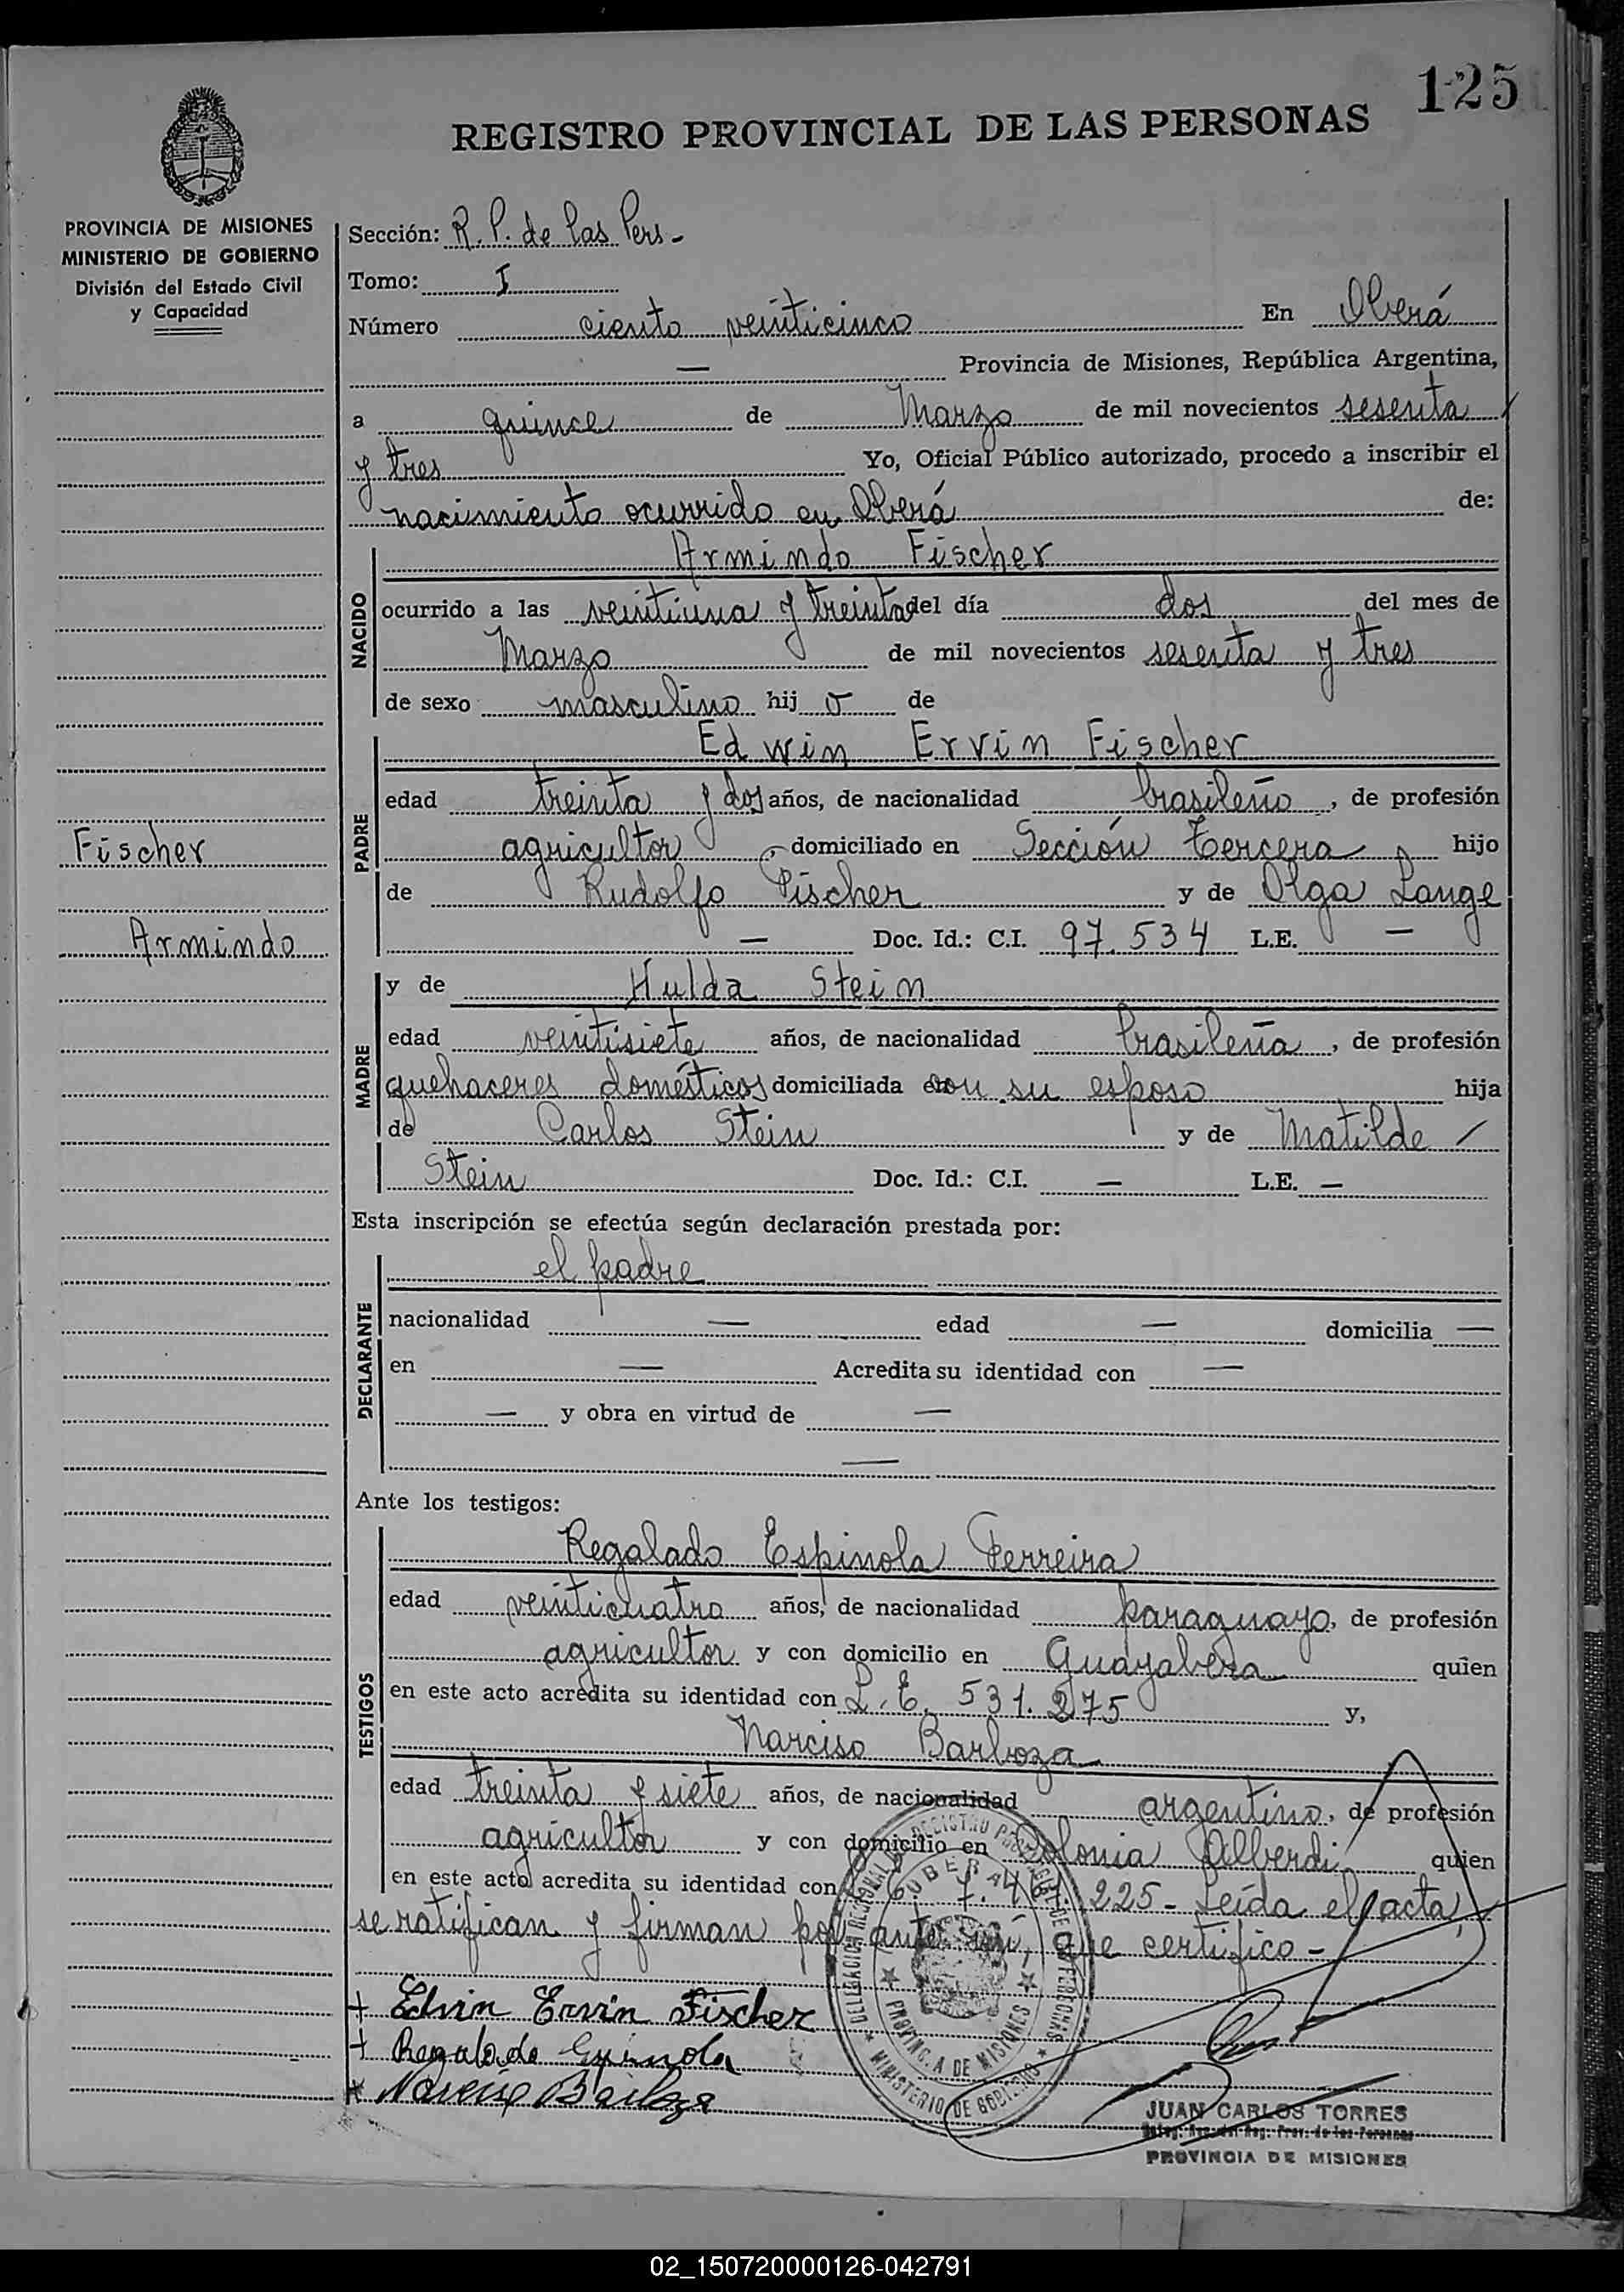 125
REGISTRO PROVINCIAL DE LAS PERSONAS
PROVINCIA DE MISIONES
MINISTERIO DE GOBIERNO
División del Estado Civil
y Capacidad
Sección: R. P. de las Pers-
Tomo: I
Número ciento veinticinco En Oberá
— Provincia de Misiones, República Argentina,
a quince de Marzo de mil novecientos sesenta /
y tres Yo, Oficial Público autorizado, procedo a inscribir el
nacimiento ocurrido en Oberá de:
NACIDO
Armindo Fischer
ocurrido a las veintiuna y treinta del día dos del mes de
Marzo de mil novecientos sesenta y tres
de sexo masculino hij o de
PADRE
Edwin Ervin Fischer
edad treinta y dos años, de nacionalidad brasileño, de profesión
agricultor, domiciliado en Sección tercera, hijo
de Rudolfo Fischer y de Olga Lange
— Doc. Id.: C.I. 97.534 L.E. —
Fischer
Armindo
MADRE
y de Hulda Stein
edad veintisiete años, de nacionalidad brasileña, de profesión
quehaceres domésticos domiciliada con su esposo hija
de Carlos Stein y de Matilde /
Stein Doc. Id.: C.I. — L.E. —
Esta inscripción se efectúa según declaración prestada por:
DECLARANTE
el padre
nacionalidad — edad — domicilia —
en — Acredita su identidad con —
— y obra en virtud de —
—
Ante los testigos:
TESTIGOS
Regalado Espinola Ferreira
edad veinticuatro años, de nacionalidad paraguayo, de profesión
agricultor y con domicilio en Guayabera quien
en este acto acredita su identidad con L.E. 531.275 y,
Narciso Barboza
edad treinta y siete años, de nacionalidad argentino, de profesión
agricultor y con domicilio en Colonia Alberdi quien
en este acto acredita su identidad con 225- Leída el acta,
se ratifican y firman por ante mí, que certifico-
+ Edvin Ervin Fischer
+ Regalado Espinola
* Narciso Barboza
MINISTERIO DE GOBIERNO
PROVINCIA DE MISIONES
JUAN CARLOS TORRES
Deleg. Reg. del Reg. Prov. de las Personas
PROVINCIA DE MISIONES
02_150720000126-042791